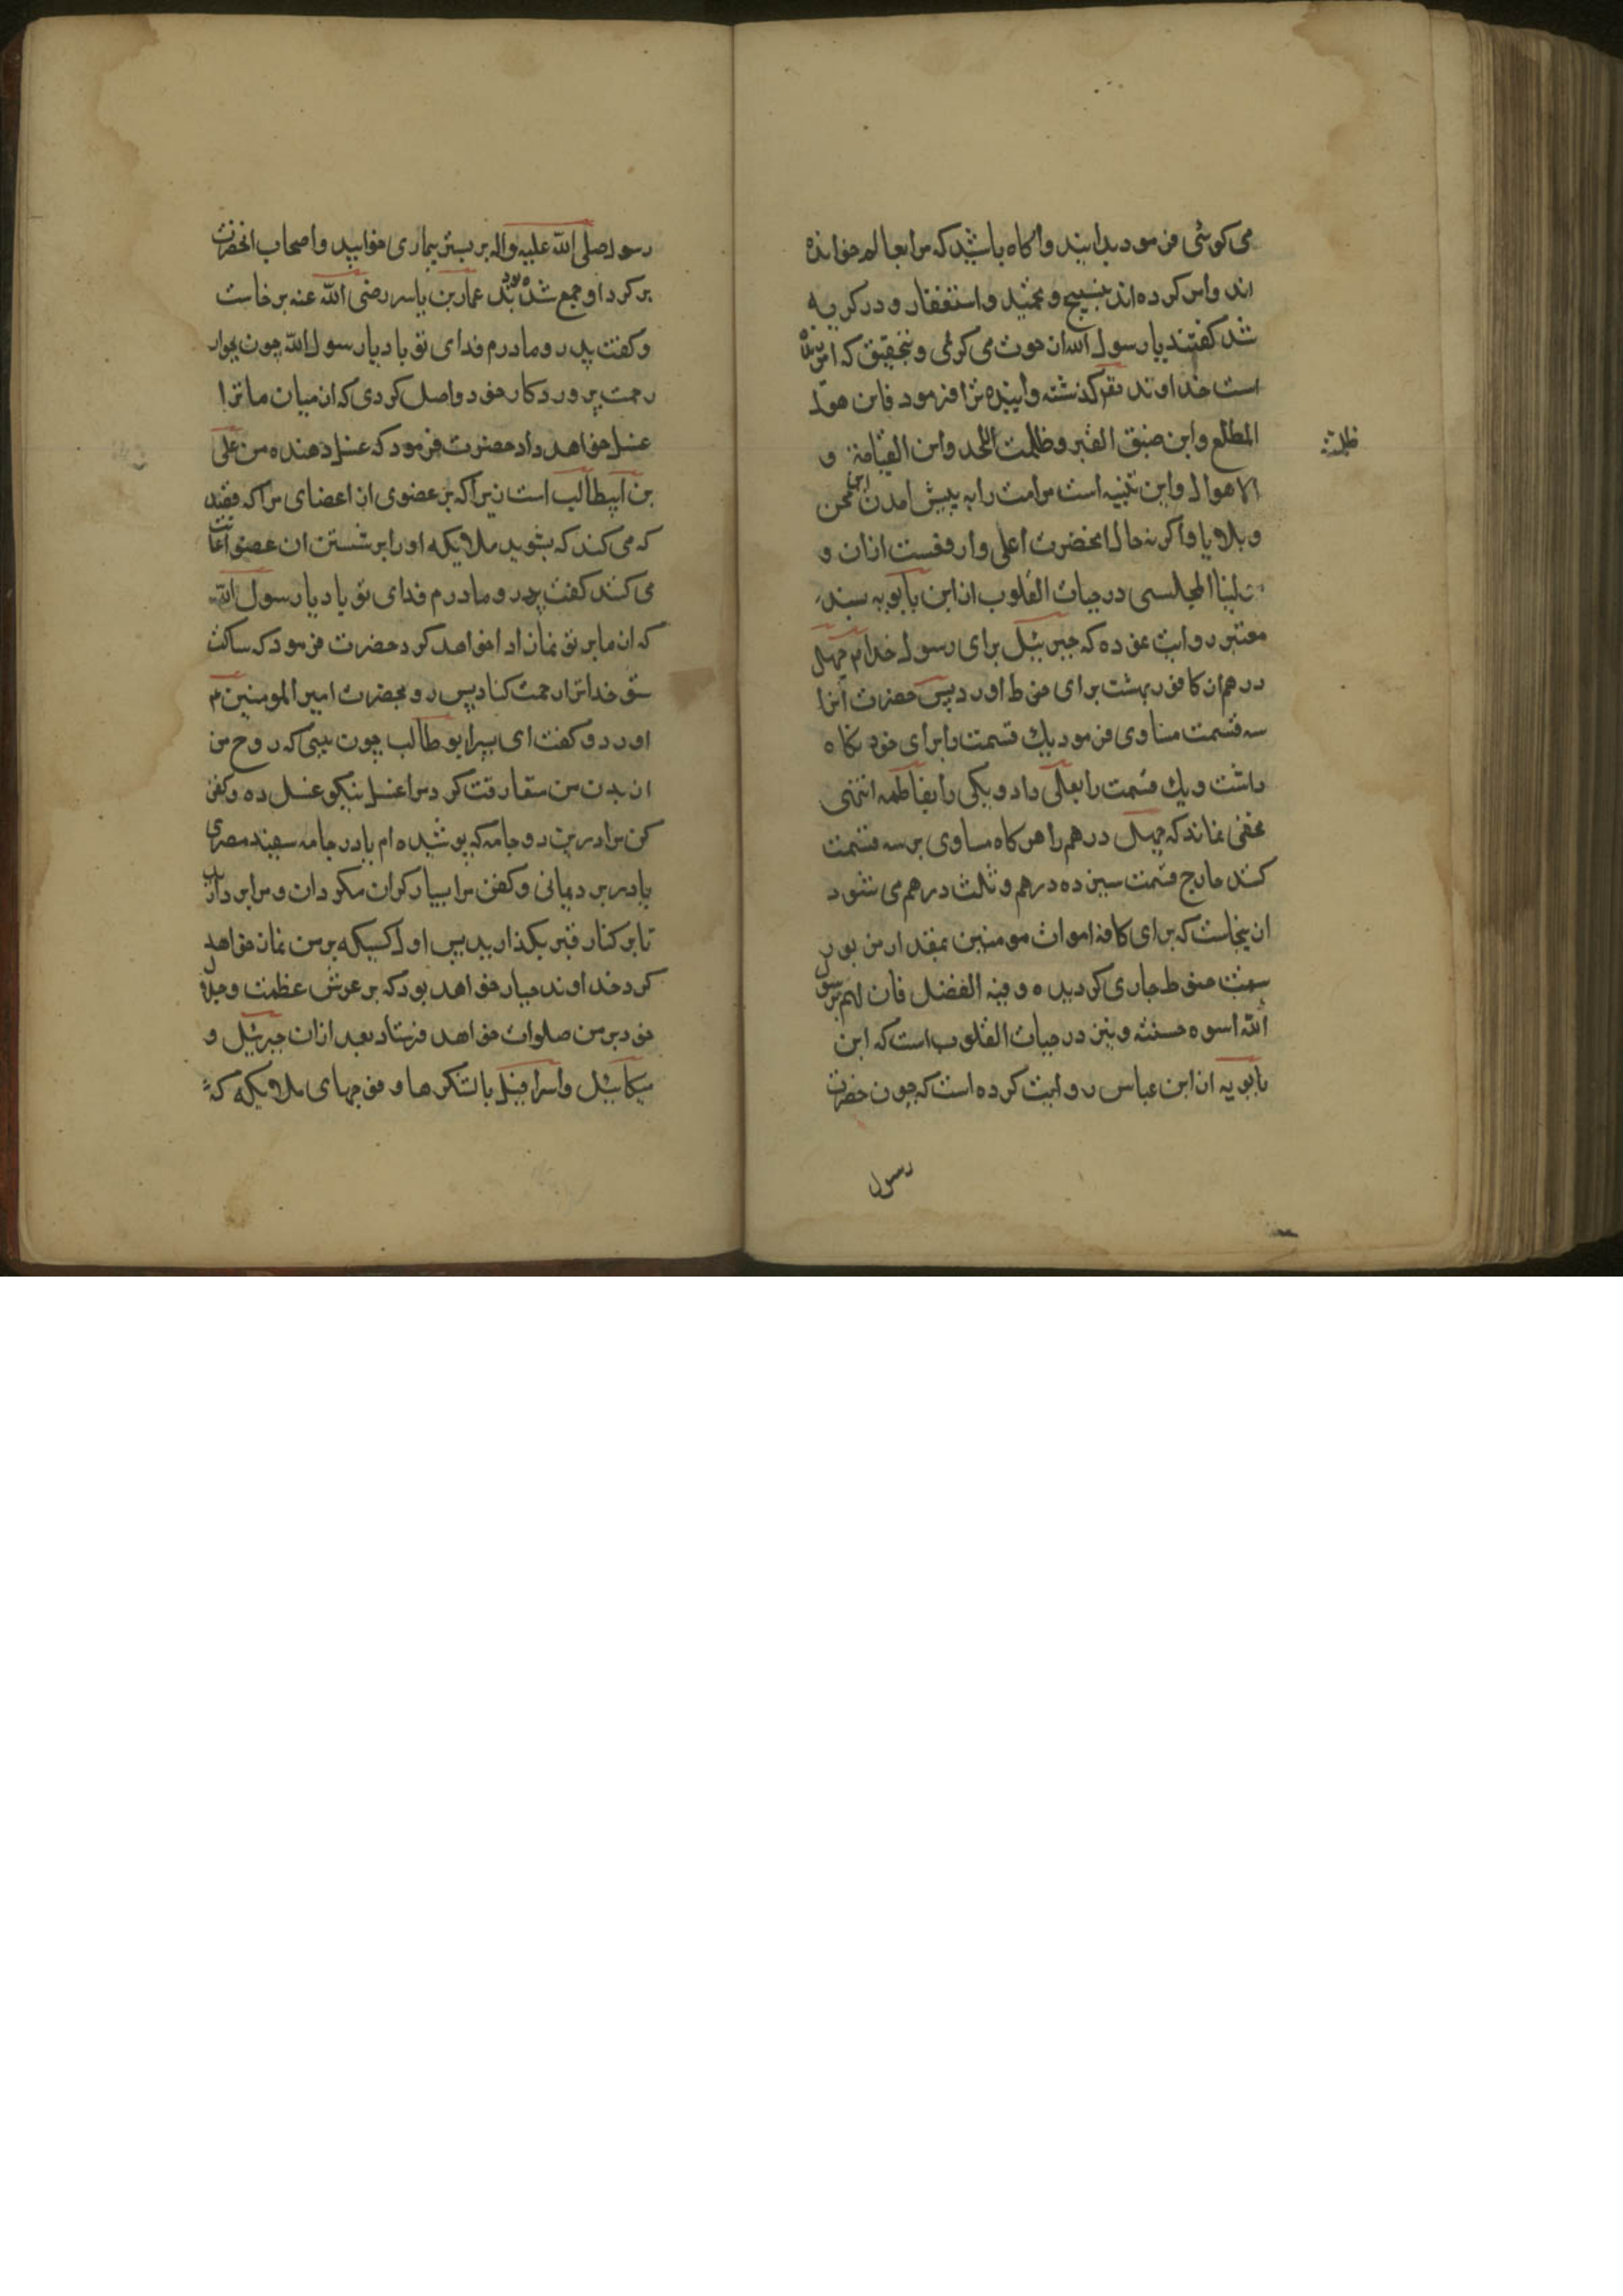 می کوشی فرمود بدانید و اکاه باشید که مرا بعالم خوانده
اند و امر کرده اند بتسبیح و تحمید و استغفار و در کریه
شد کفتند یا رسول الله از موت می کوئی و بتحقیق که امرزیده
است خداوند تقصیر کذشته و اینده ترا فرمود فاین هول
المطلع و این ضیق القبر و ظلمت اللحد و این القیامة و
ظلمة
الاهوال و این تنبیه است مر امت را به پیش امدن این محن
و بلایا و اکر نه حال انحضرت اعلی و ارفعست از ان و
المجلسی در حیات القلوب از ابن بابویه بسند
معتبر روایت نموده که جبرئیل برای رسول خدا م چهل
درهم از کافور بهشت برای حنوط اورد پس حضرت انرا
سه قسمت مساوی فرمود یک قسمت را برای خود نکاه
داشت و یک قسمت را بعلی داد و یکی را بفاطمه انتهی
مخفی نماند که چهل درهم را هر کاه مساوی بر سه قسمت
کنند خارج قسمت سیزده درهم و ثلث درهم می شود
از ینجاست که برای کافه اموات مومنین بمقدار مزبور
سنت حنوط جاری کردیده و فیه الفضل فان لهم برسول
الله اسوه حسنة و نیز در حیات القلوب است که ابن
بابویه از ابن عباس روایت کرده است که چون حضرت
رسول
رسول صلی الله علیه و اله بر بستر بیماری خوابید و اصحاب انحضرت
بر کرد او جمع شده بودند عمار بن یاسر رضی الله عنه بر خاست
و کفت پدر و مادرم فدای تو باد یا رسول الله چون بجوار
رحمت پروردکار خود واصل کردی که از میان ما ترا
غسل خواهد داد حضرت فرمود که غسل دهنده من علی
بن ابیطالب است زیرا که بر عضوی از اعضای مرا که قصد
که می کند که بشوید ملایکه او را بر شستن ان عضو اعانت
می کنند کفت پدر و مادرم فدای تو باد یا رسول الله
که از ما بر تو نماز ادا خواهد کرد حضرت فرمود که ساکت
شو خدا ترا رحمت کناد پس رو بحضرت امیر المومنین م
اورد و کفت ای پسر ابو طالب چون بینی که روح من
از بدن من مفارقت کرد مرا غسل نیکو غسل ده و کفن
کن مرا در ین دو جامه که پوشیده ام یا در جامه سفید مصری
یا در برد یمانی و کفن مرا بسیار کران مکردان و مرا بردارید
تا بر کنار قبر بکذارید پس اول کسیکه بر من نماز خواهد
کرد خداوند جبار خواهد بود که بر عرش عظمت و جلال
خود بر من صلوات خواهد فرستاد بعد از ان جبرئیل و
میکائیل و اسرافیل با لشکرها و فوجهای ملایکه که